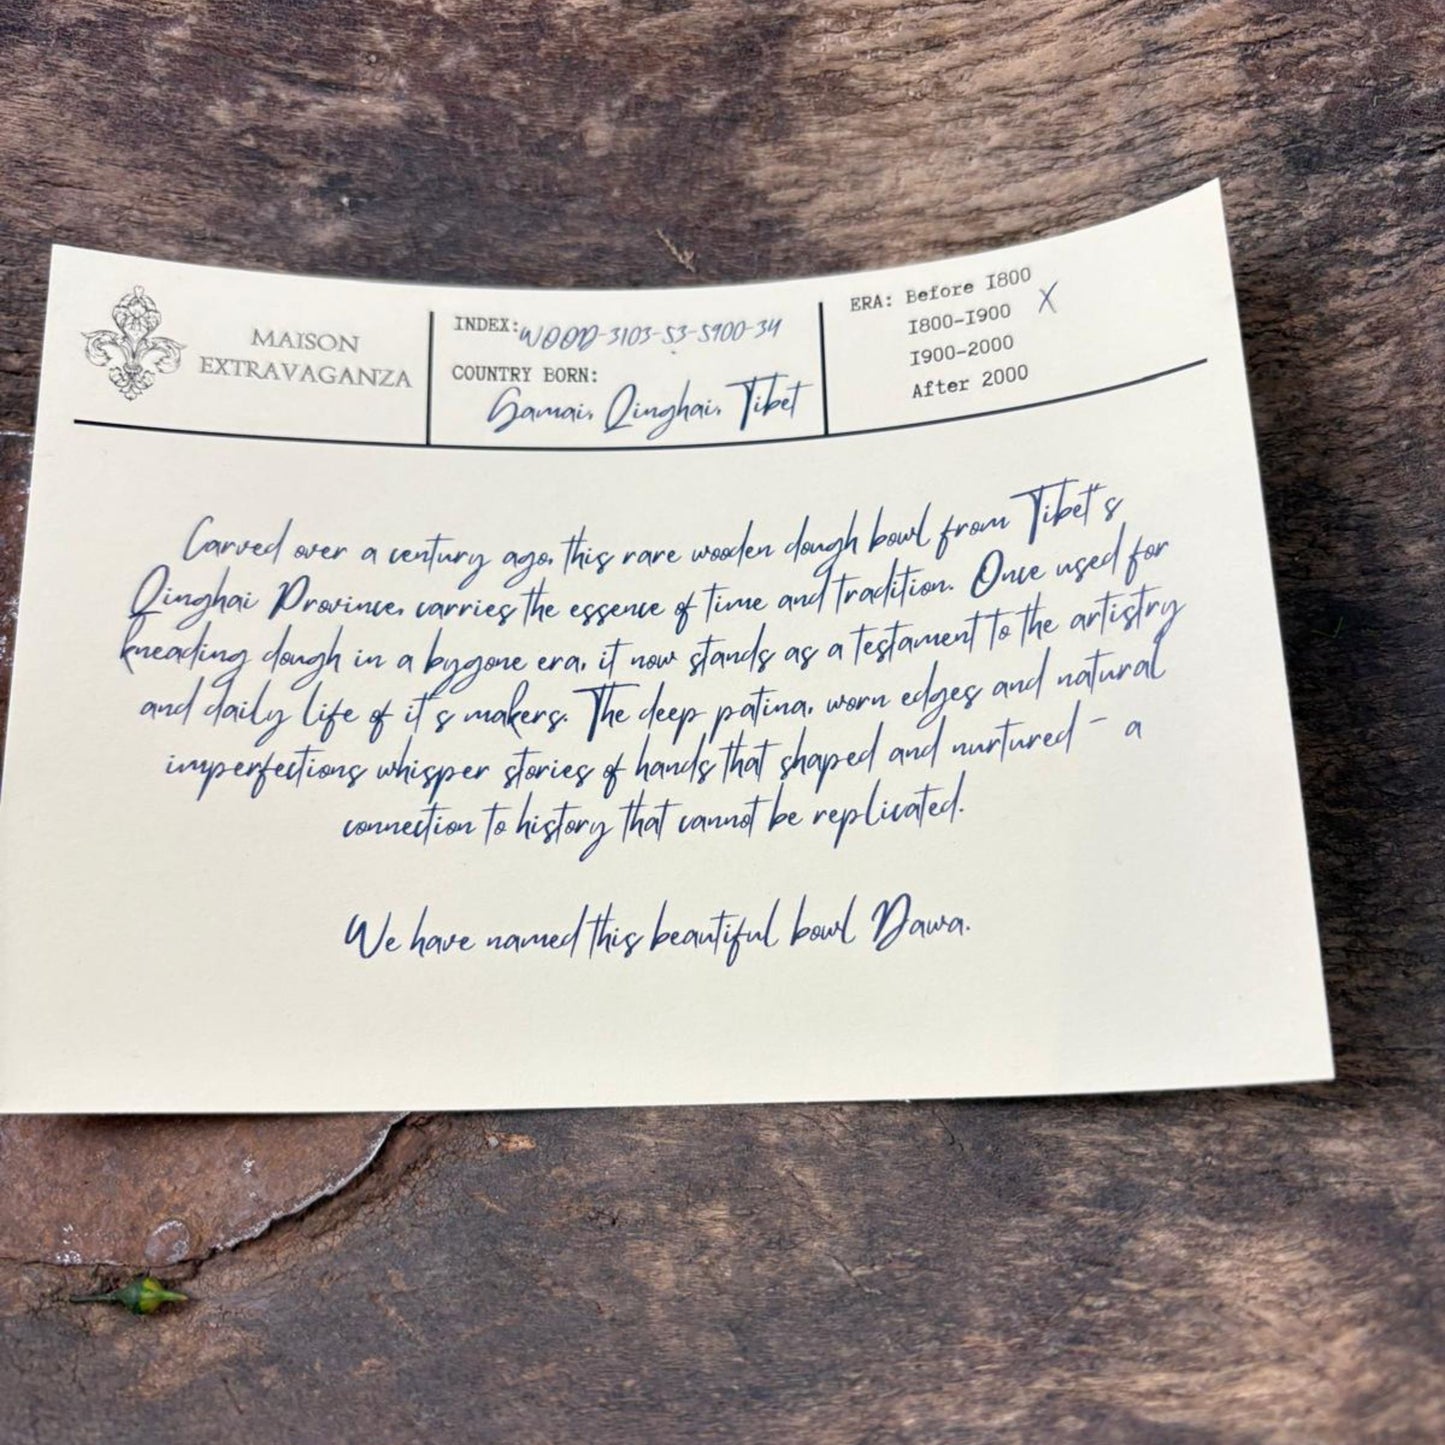 MAISON
EXTRAVAGANZA
INDEX: WOOD-3103-53-5900-34
COUNTRY BORN:
Gamai, Qinghai, Tibet
ERA: Before 1800
1800-1900 X
1900-2000
After 2000
Carved over a century ago, this rare wooden dough bowl from Tibet's
Qinghai Province, carries the essence of time and tradition. Once used for
kneading dough in a bygone era, it now stands as a testament to the artistry
and daily life of it's makers. The deep patina, worn edges and natural
imperfections whisper stories of hands that shaped and nurtured - a
connection to history that cannot be replicated.
We have named this beautiful bowl Dawa.